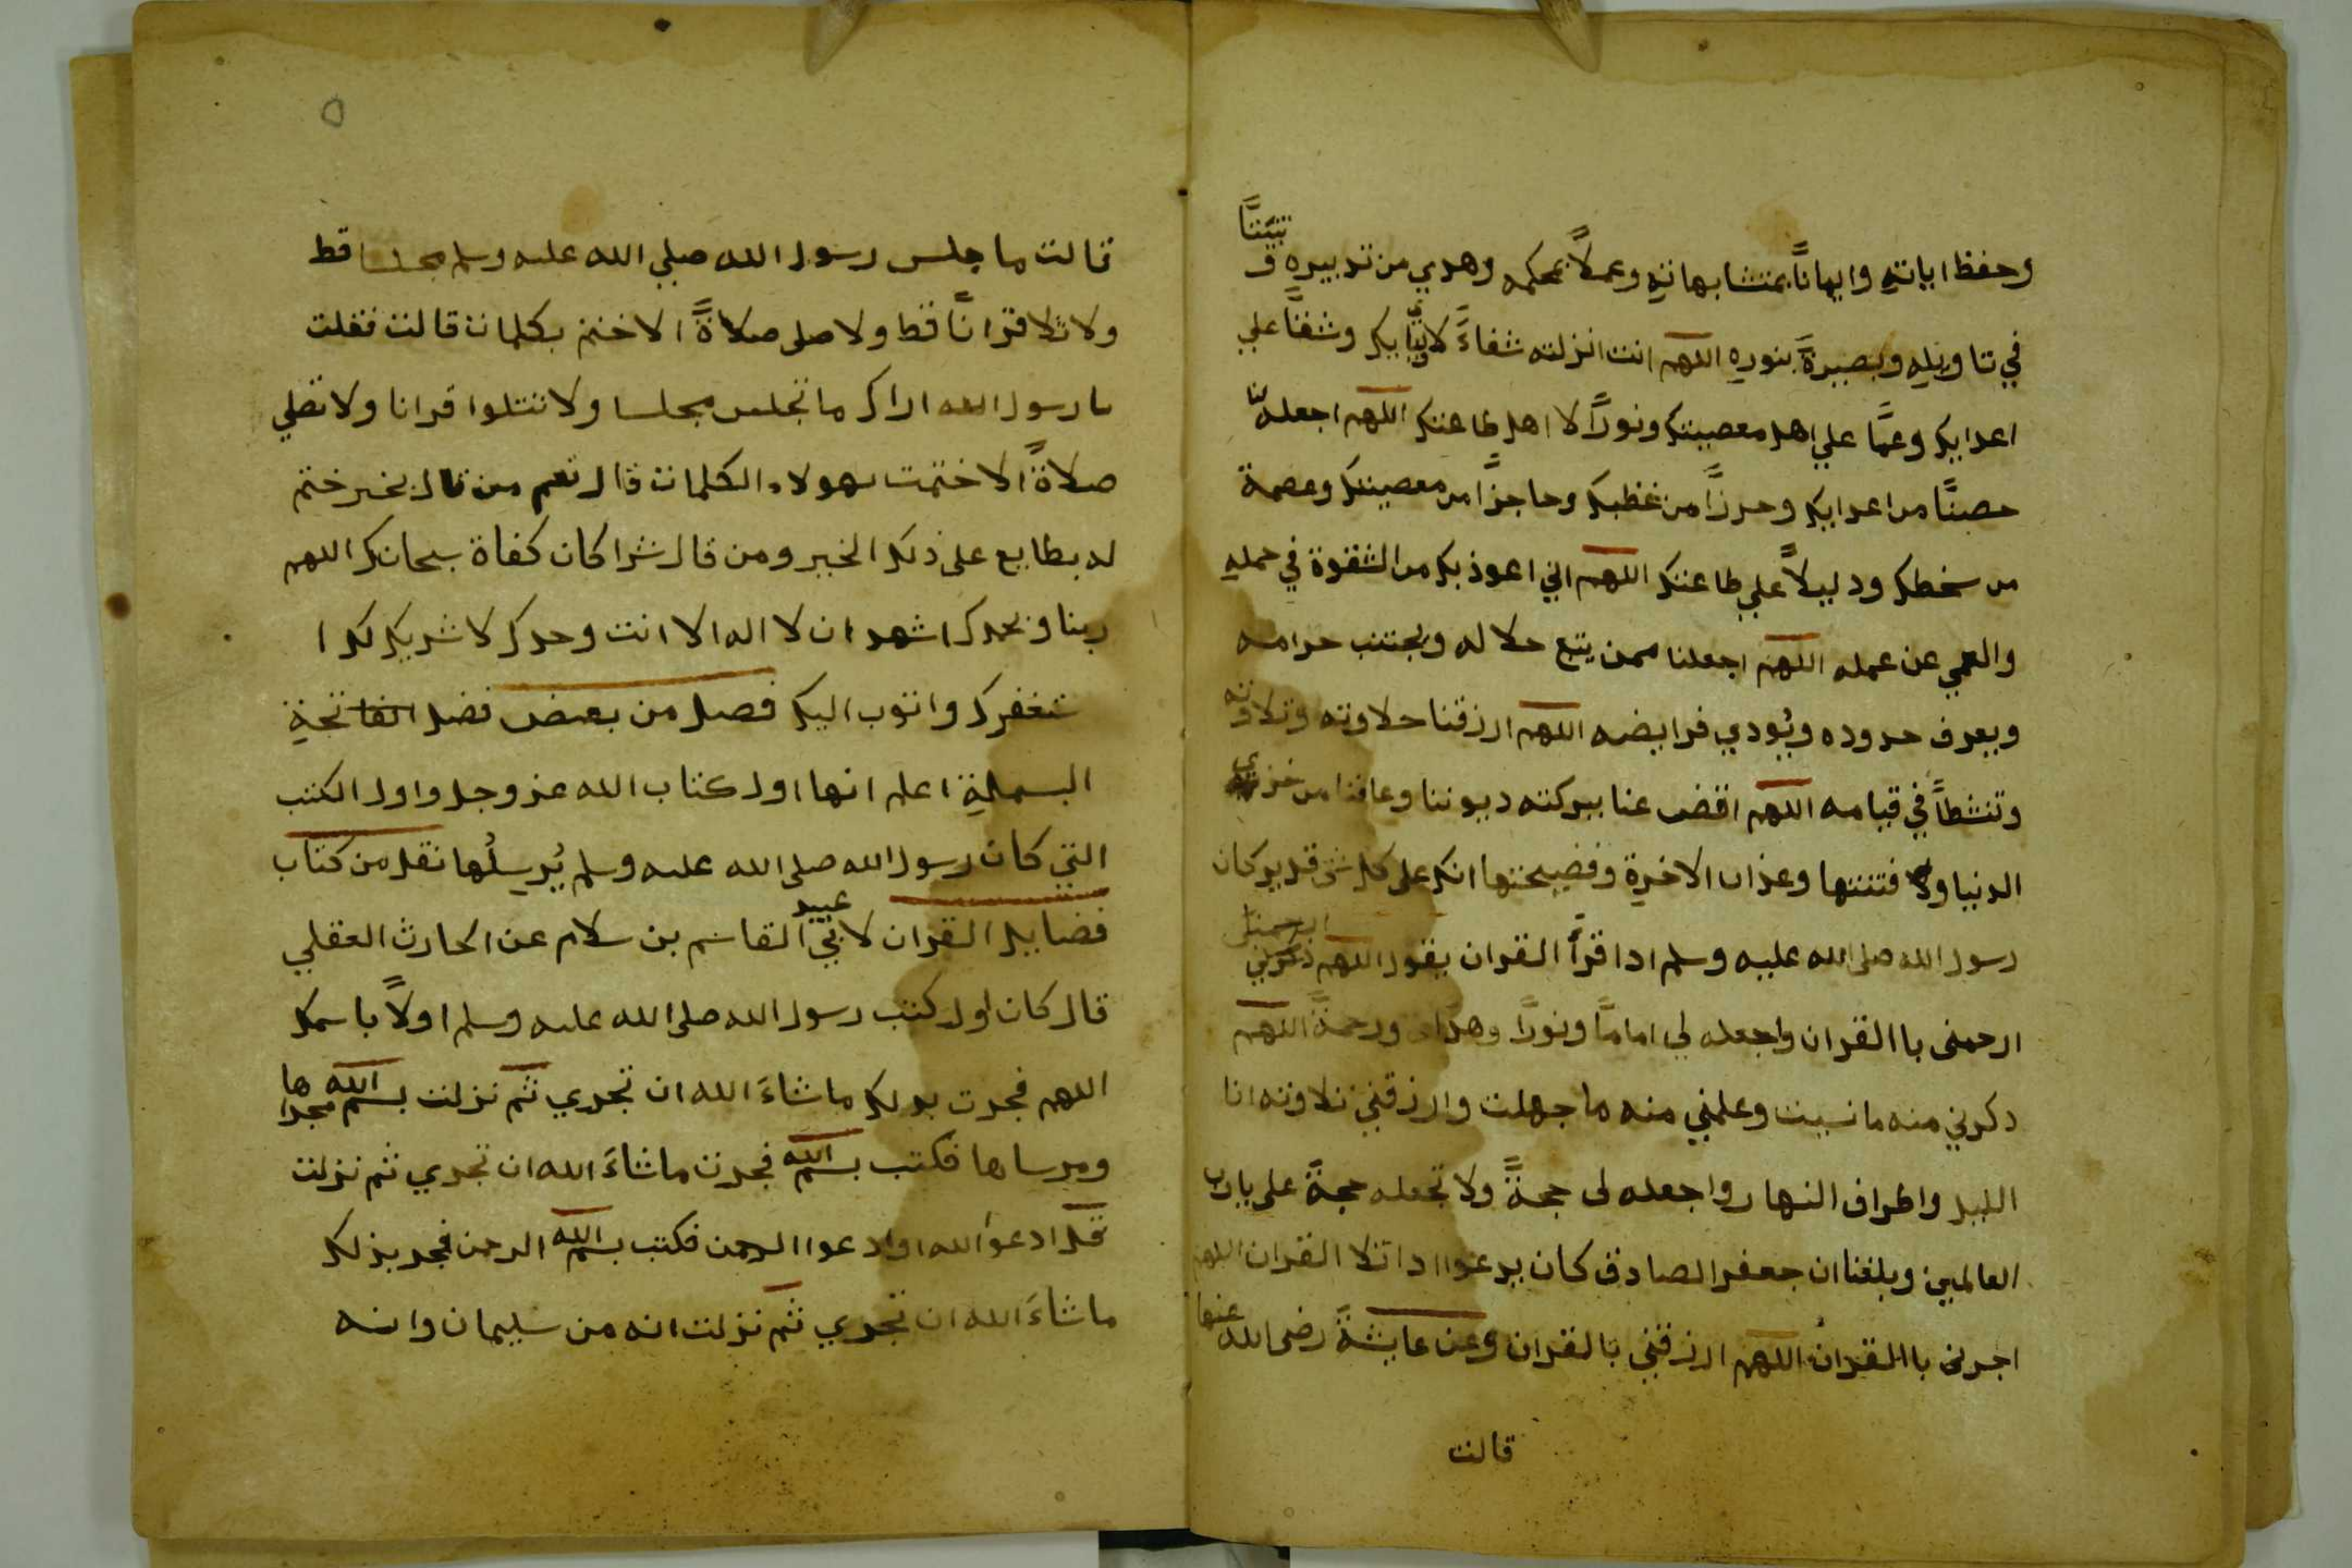 وحفظ اياته وايماناً بمتشابهاته وعملاً بمحكمه وهدي من تدبيره و تبيّنّاً
في تاويله وبصيرةً بنوره اللهم انت انزلته شفاءً لاوليّايك وشقاً علي
اعدايك وعمًّا علي اهل معصيتك ونوراً لا اهل طاعتك اللهم اجعله لنا
حصناً من اعدايك وحرزاً من غظبك وحاجزاً من معصيتك وعصمة
من سخطك ودليلاً علي طاعتك اللهم اني اعوذ بك من الشقوة في حمله
والعمي عن عمله اللهم اجعلنا ممن يتبع حلاله ويجتنب حرامه
ويعرف حدوده ويُودي فرايضه اللهم ارزقنا حلاوته وتلاوته
وتنشطاً في قيامه اللهم اقض عنا ببركته ديوننا وعافنا من خزي
الدنيا و فتنتها وعذاب الاخرة وفضيحتها انك على كل شى قدير كان
رسول الله صلى الله عليه وسلم اذا قرأ القران يقول اللهم ارحمنى
ارحمنى باالقران واجعله لي اماماً ونوراً وهداى ورحمةً اللهم
دكرني منه ما نسيت وعلمني منه ما جهلت وارزقني تلاوته انا
الليل واطراف النهار واجعله لى حجةً ولا تجعله حجةً على يارب
العالمين وبلغنا ان جعفر الصادق كان يدعوا اذا تلا القران اللهم
اجرنى باالقران اللهم ارزقني بالقران وعن عايشةً رضى الله عنها
قالت
٥
قالت ما جلس رسول الله صلي الله عليه وسلم مجلسا قط
ولا تلا قراناً قط ولا صلى صلاةً الا ختم بكلمات قالت فقلت
يا رسول الله اراك ما تجلس مجلسا ولا تتلوا قرانا ولا تصلي
صلاةً الا ختمت بهولاء الكلمات قال نعم من قال بخير ختم
له بطابع على ذلك الخير ومن قال شرا كان كفاة سبحانك اللهم
ربنا وبحمدك اشهد ان لا اله الا انت وحدك لا شريك لك ا
ستغفرك واتوب اليك فصل من بعض فضل الفاتحة
البسملة اعلم انها اول كتاب الله عز وجل واول الكتب
التي كان رسول الله صلى الله عليه وسلم يُرسِلُها نقل من كتاب
فضايل القران لابي عبيد القاسم بن سلام عن الحارث العقلي
قال كان اول كتب رسول الله صلى الله عليه وسلم اولاً باسمك
اللهم فجرت بدلك ما شاءَ الله ان تجري ثم نزلت بسم الله مجراها
ومرساها فكتب بسم الله فجرت ما شاءَ الله ان تجري ثم نزلت
قل ادعوا الله او ادعوا الرحمن فكتب بسم الله الرحمن فجر بذلك
ما شاءَ الله ان تجري ثم نزلت انه من سليمان وانه